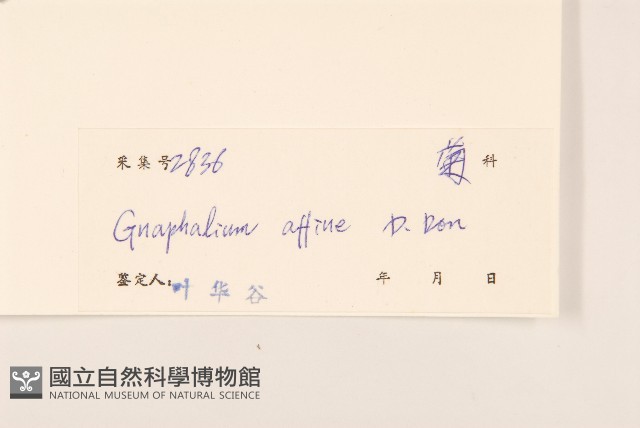 采集号 2836 菊科
Gnaphalium affine D. Don
鉴定人: 叶华谷 年 月 日
國立自然科學博物館
NATIONAL MUSEUM OF NATURAL SCIENCE